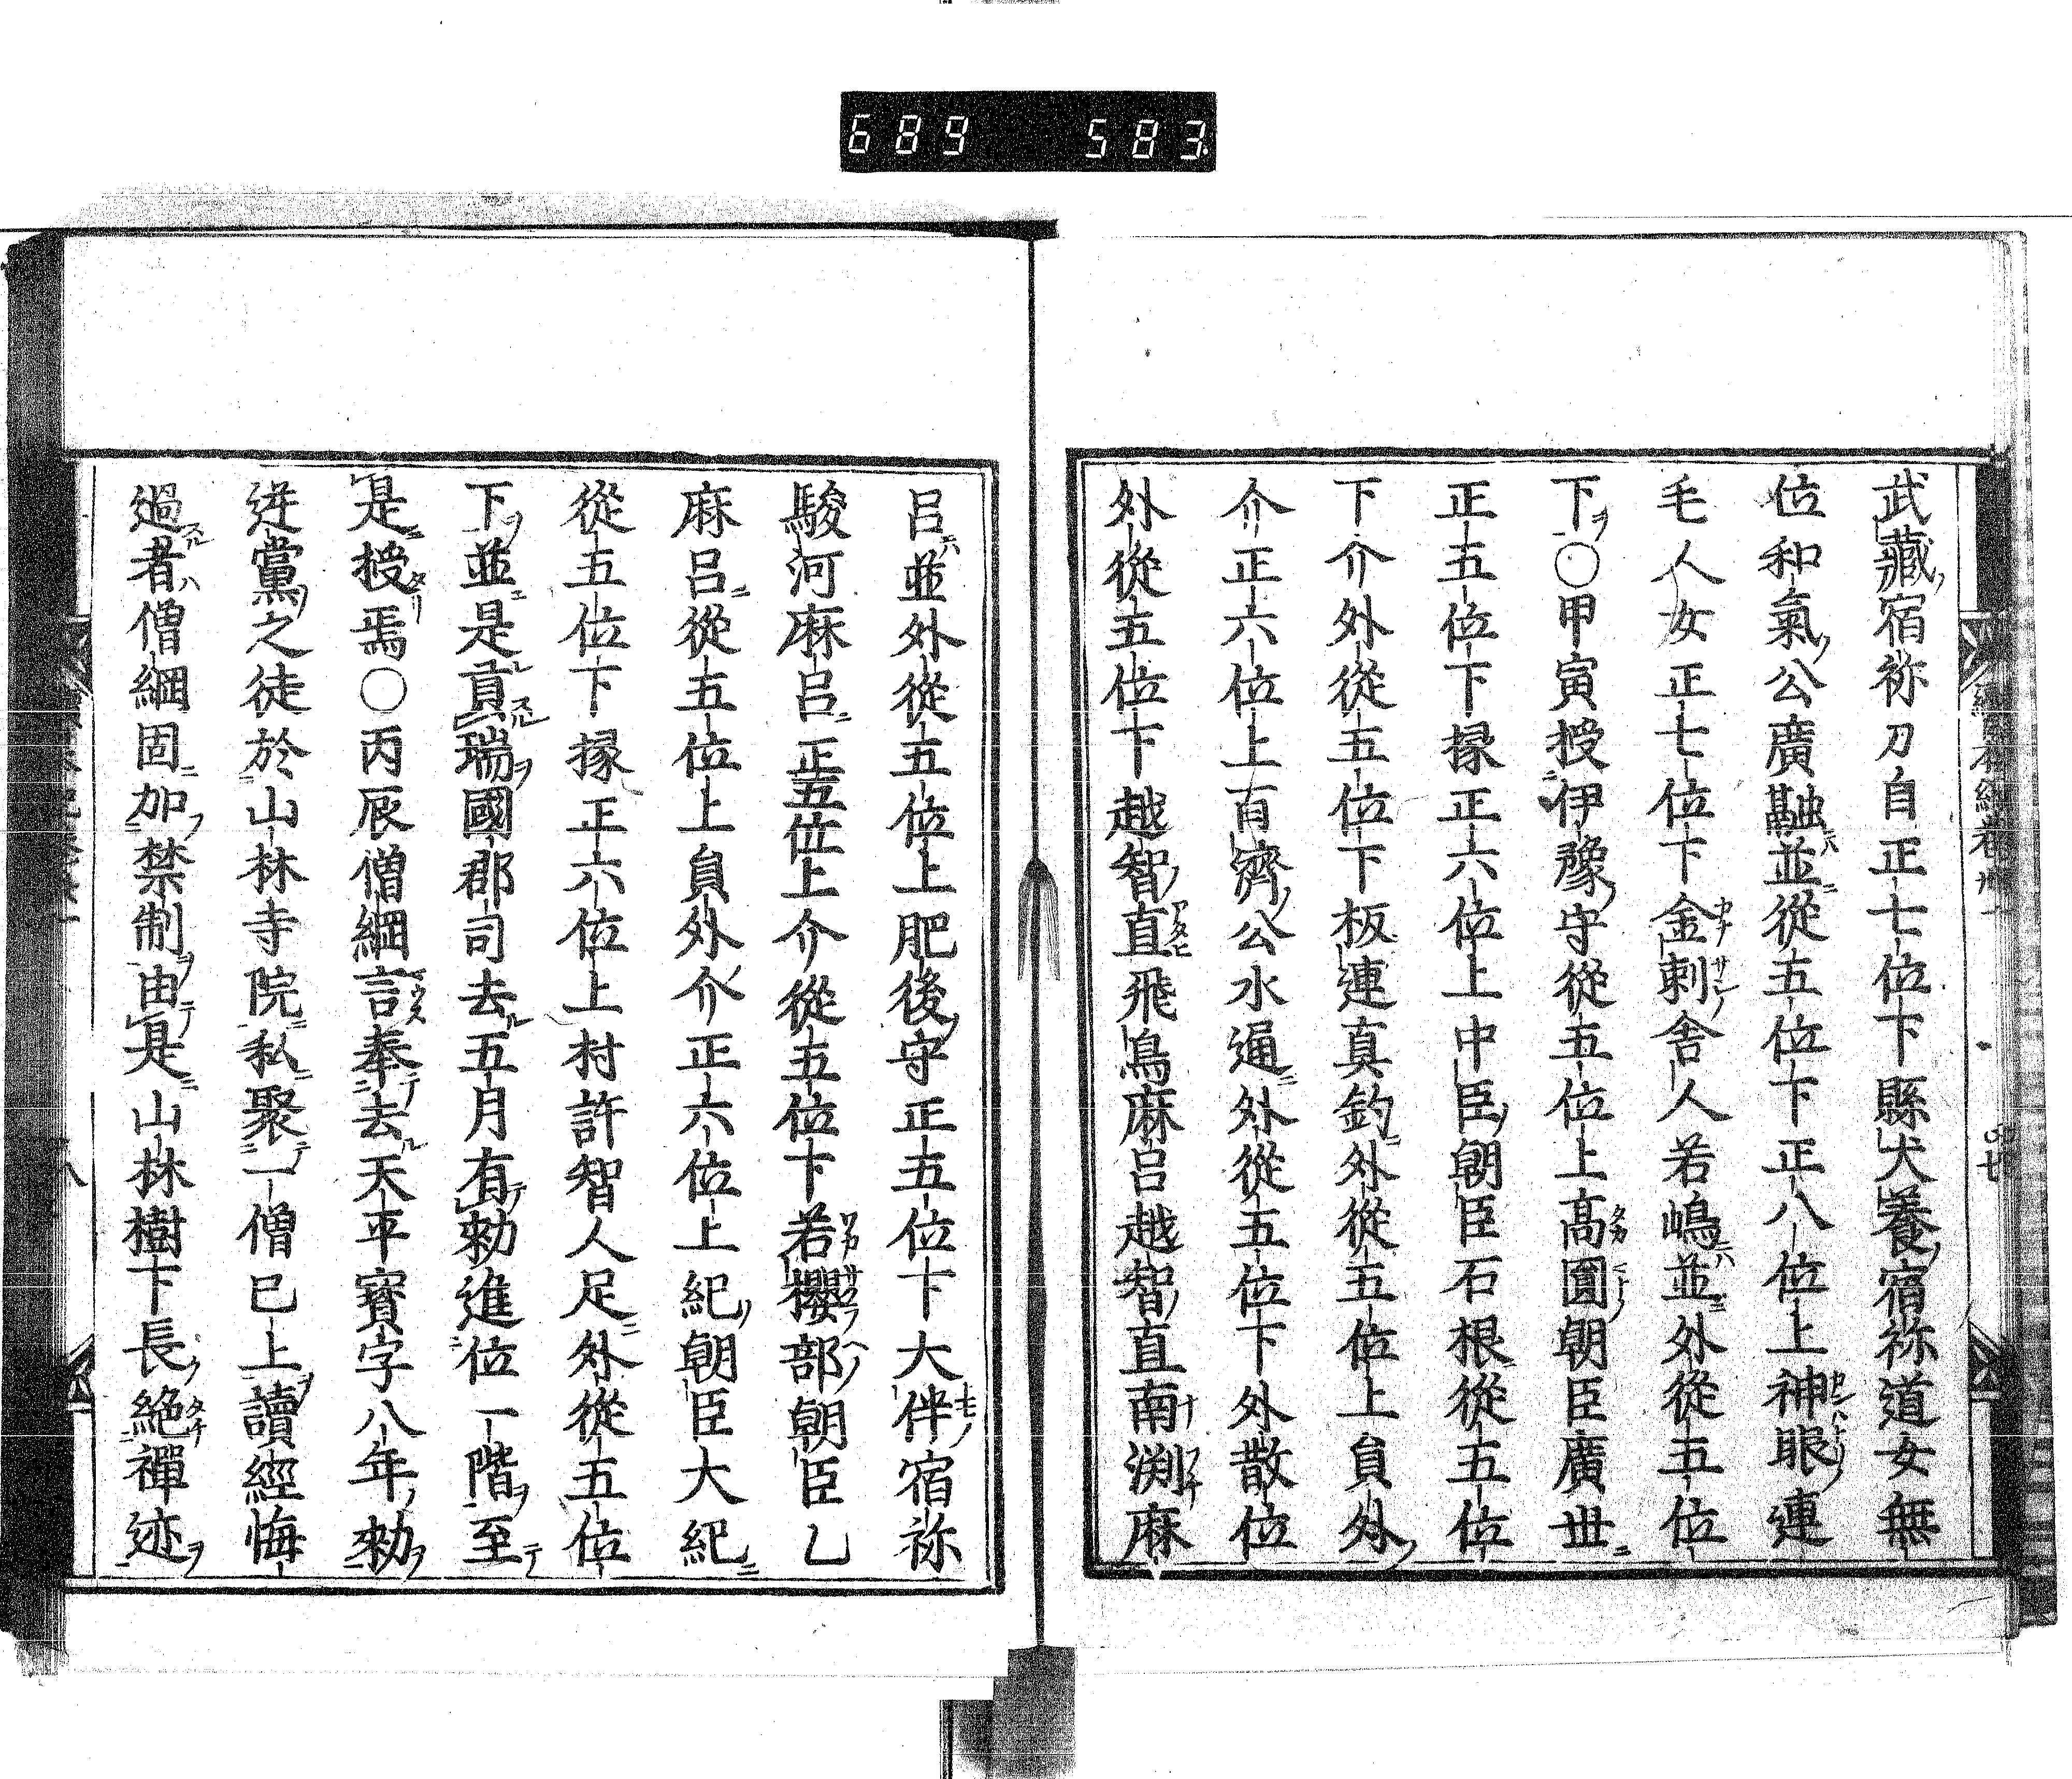 689 583
武藏宿祢刀自正七位下縣犬養宿祢道女無
位和氣公廣融並從五位下正八位上神眼連
毛人女正七位下金刺舍人若嶋並外從五位
下〇甲寅授伊豫守從五位上高圓朝臣廣世
正五位下掾正六位上中臣朝臣石根從五位
下介外從五位下板連真釣外從五位上員外
介正六位上百濟公水通外從五位下外散位
外從五位下越智直飛鳥麻呂越智直南渕麻
呂並外從五位上肥後守正五位下大伴宿祢
駿河麻呂正五位上介從五位下若櫻部朝臣乙
麻呂從五位上員外介正六位上紀朝臣大紀
從五位下掾正六位上村許智人足外從五位
下並是貢瑞國郡司去五月有勑進位一階至
是授焉〇丙辰僧綱言奉去天平寳字八年勑
逆黨之徒於山林寺院私聚一僧已上讀經悔
過者僧綱固加禁制由是山林樹下長絶禪迹